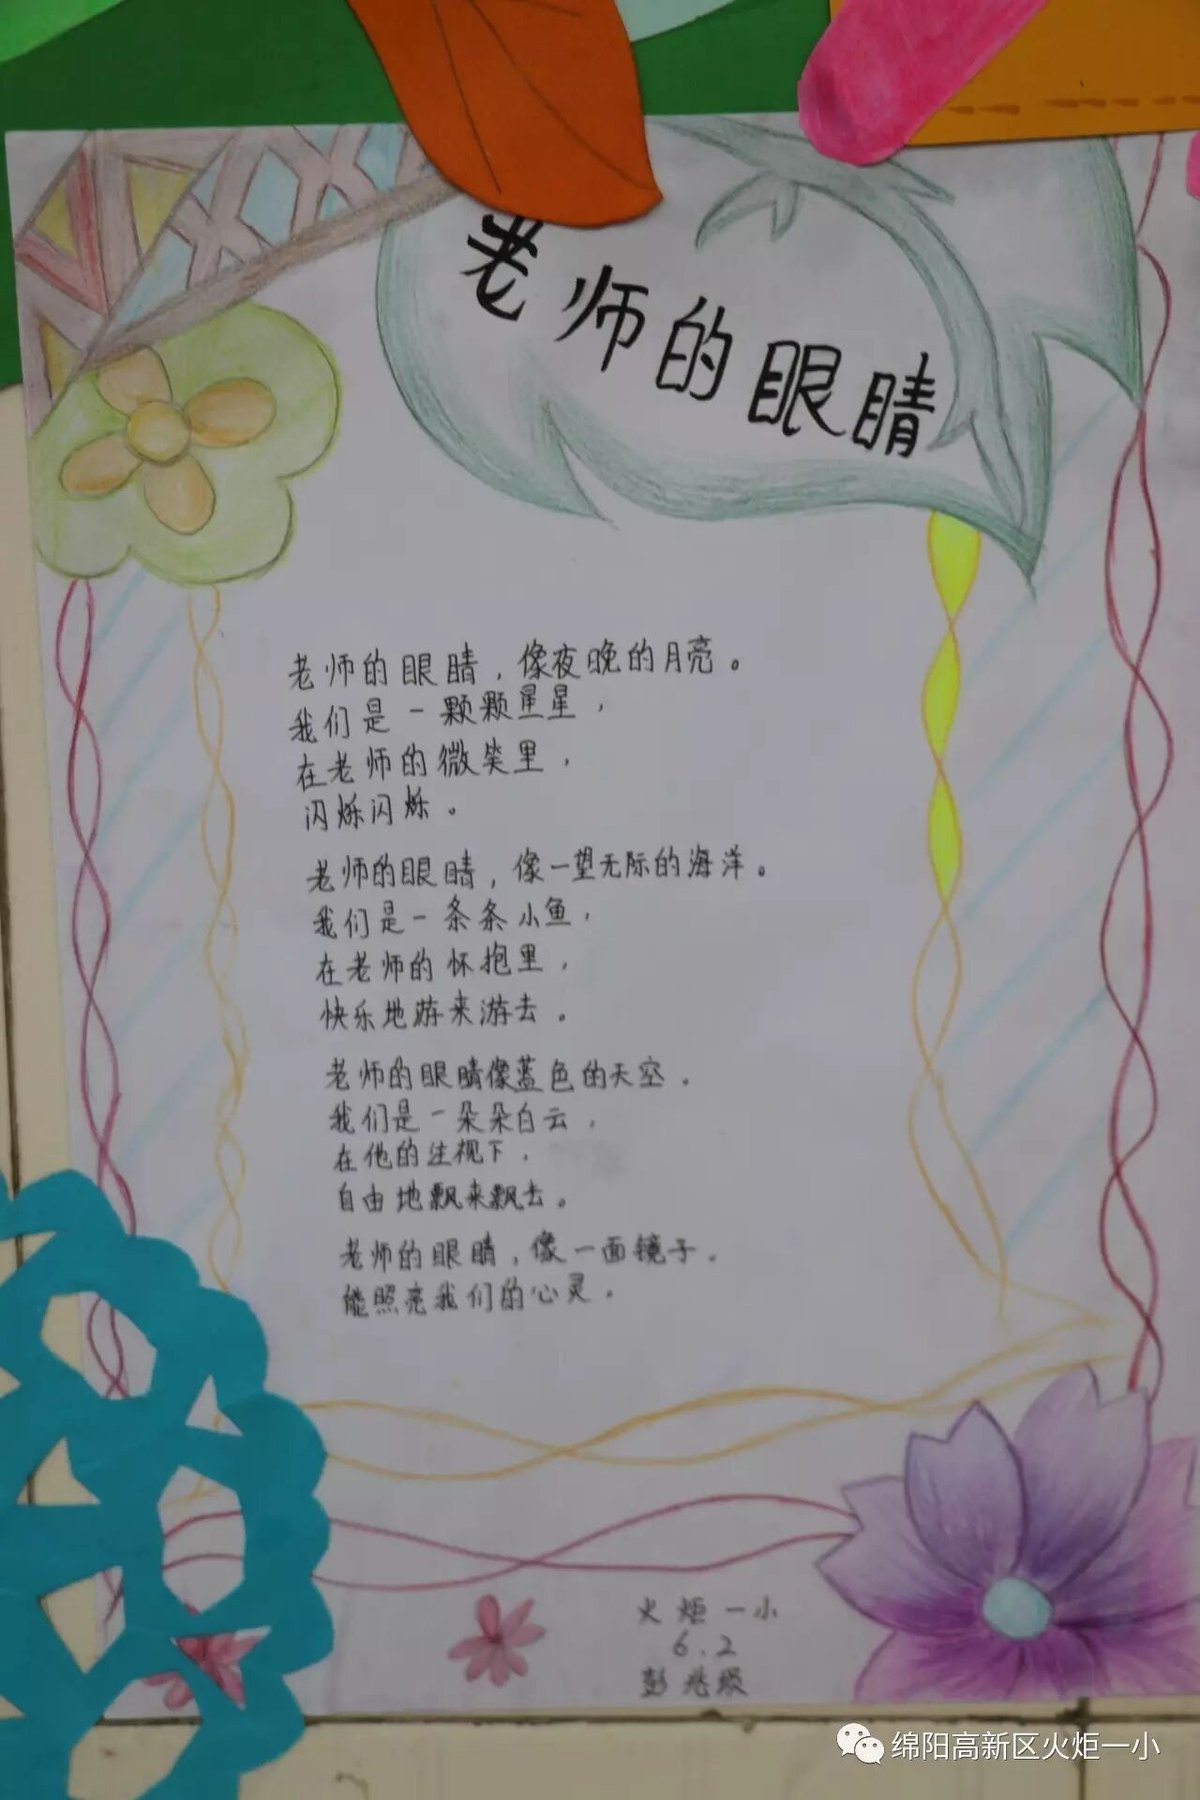 老师的眼睛
老师的眼睛，像夜晚的月亮。
我们是一颗颗星星，
在老师的微笑里，
闪烁闪烁。
老师的眼睛，像一望无际的海洋。
我们是一条条小鱼，
在老师的怀抱里，
快乐地游来游去。
老师的眼睛像蓝色的天空。
我们是一朵朵白云，
在他的注视下，
自由地飘来飘去。
老师的眼睛，像一面镜子。
能照亮我们的心灵。
火炬一小
6.2
彭兆
绵阳高新区火炬一小